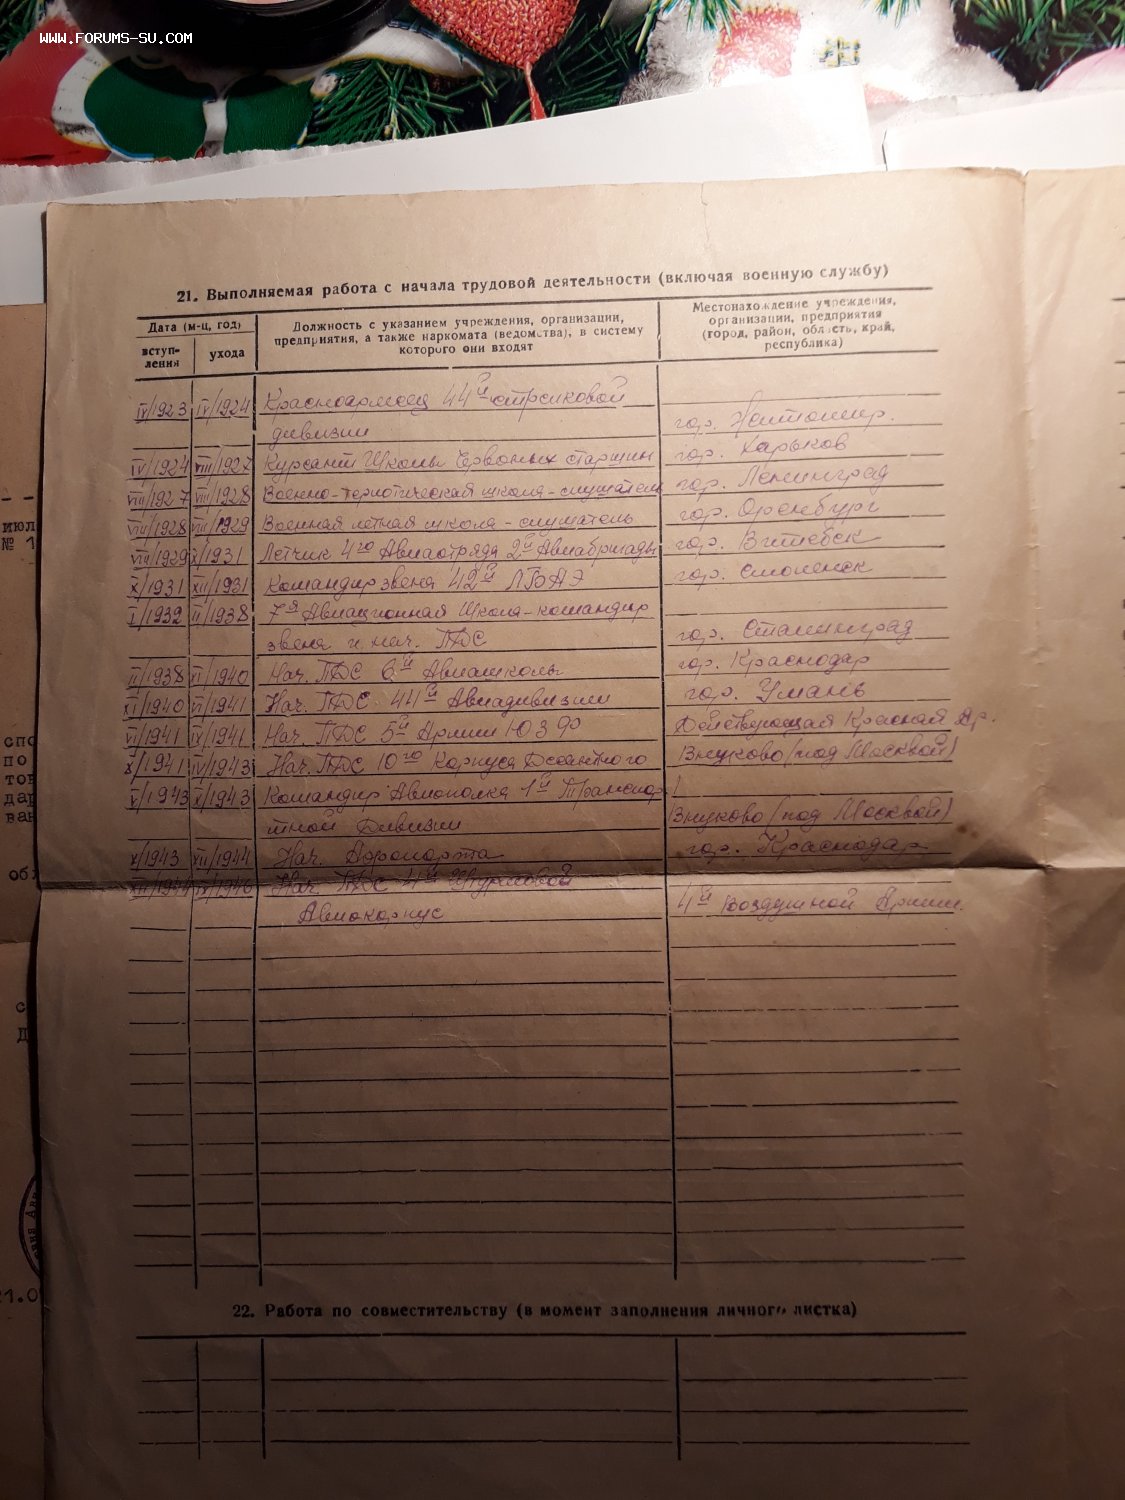 WWW.FORUMS-SU.COM
21. Выполняемая работа с начала трудовой деятельности (включая военную службу)
Дата (м-ц, год)
вступ-
ления
ухода
Должность с указанием учреждения, организации,
предприятия, а также наркомата (ведомства), в систему
которого они входят
Местонахождение учреждения,
организации, предприятия
(город, район, область, край,
республика)
IV/1923 IV/1924 Красноармеец 44й стрелковой
дивизии гор. Житомир.
IV/1924 VIII/1927 Курсант Школы Червоных старшин гор. Харьков
VIII/1927 VIII/1928 Военно-теоретическая школа-слушатель гор. Ленинград
VIII/1928 VIII/1929 Военная летная школа - слушатель гор. Оренбург
VIII/1929 X/1931 Летчик 4го Авиаотряда 2й Авиабригады гор. Витебск
X/1931 XII/1931 Командир звена 42й ЛБАЭ гор. Смоленск
I/1932 II/1938 7я Авиационная Школа-командир
звена и нач. ПДС гор. Сталинград
II/1938 XI/1940 Нач. ПДС 6й Авиашколы гор. Краснодар
XI/1940 VI/1941 Нач. ПДС 44й Авиадивизии гор. Умань
VI/1941 IX/1941 Нач. ПДС 5й Армии ЮЗФ Действующая Красная Ар.
X/1941 IV/1943 Нач. ПДС 10го Корпуса Десантного Внуково (под Москвой)
V/1943 X/1943 Командир Авиаполка 1й Транспор
тной Дивизии Внуково (под Москвой)
X/1943 XII/1944 Нач. Аэропорта гор. Краснодар
XII/1944 IV/1946 Нач. ПДС 4й Штурмовой
Авиокорпус 4й Воздушной Армии.
22. Работа по совместительству (в момент заполнения личного листка)
июл
№ 1
спо
по
тов
дар
ван
об
с
Д
21.0